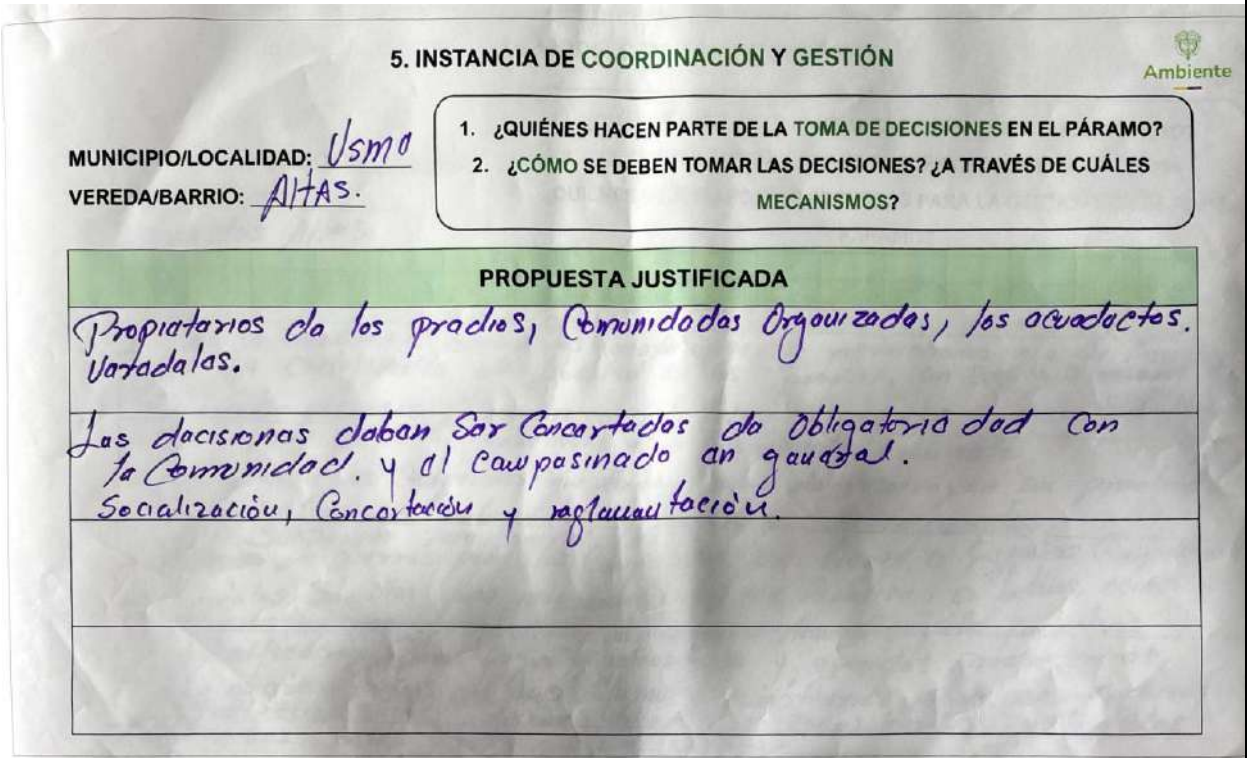 5. INSTANCIA DE COORDINACIÓN Y GESTIÓN
Ambiente
MUNICIPIO/LOCALIDAD: Usme
VEREDA/BARRIO: AltAS.
1. ¿QUIÉNES HACEN PARTE DE LA TOMA DE DECISIONES EN EL PÁRAMO?
2. ¿CÓMO SE DEBEN TOMAR LAS DECISIONES? ¿A TRAVÉS DE CUÁLES
MECANISMOS?
PROPUESTA JUSTIFICADA
Propietarios de los predios, Comunidades Organizadas, los acueductos.
Veredales.
Las decisiones deben Ser Concertados de Obligatoriedad Con
la Comunidad. y el Campesinado en general.
Socialización, Concertación y reglamentación.